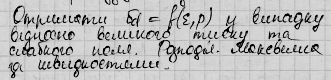 Отримати εd = f(ε,p) у випадку
відносно великого тиску та
слабкого поля. Розподіл Максвелла
за швидкостями.